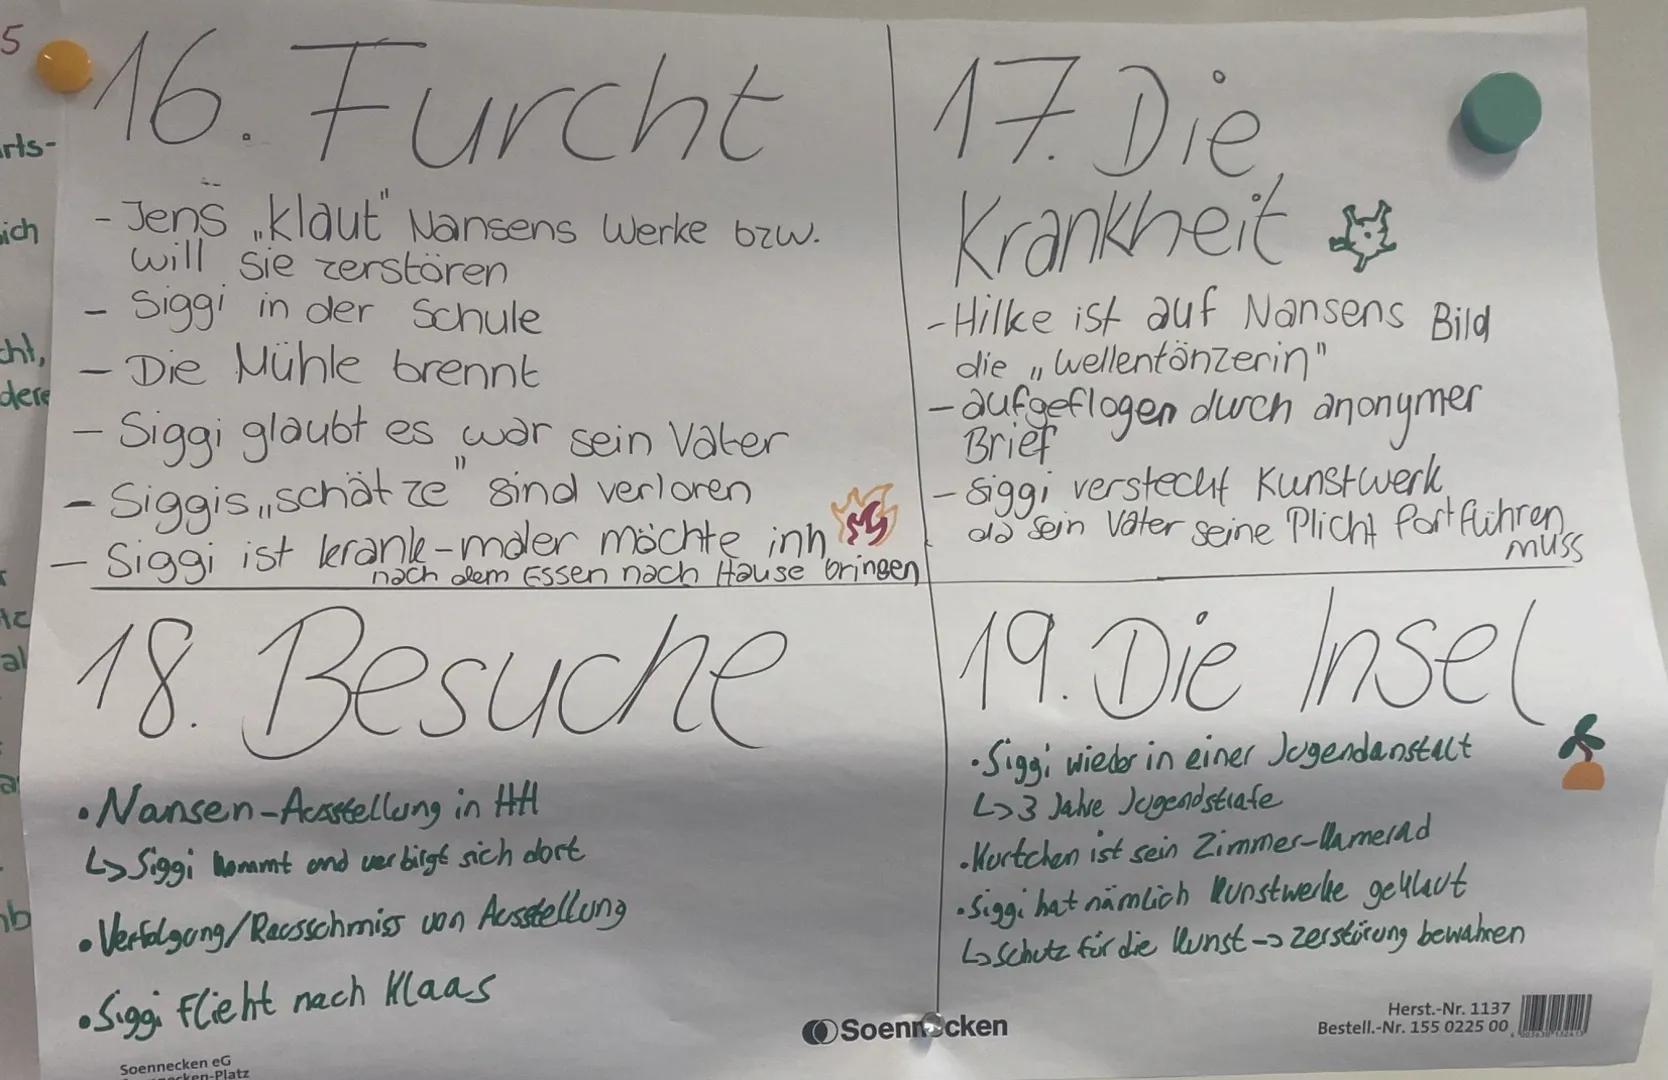 5
arts-
sich
cht,
dere
16. Furcht
- Jens „klaut" Nansens Werke bzw.
will sie zerstören
- Siggi in der Schule
- Die Mühle brennt
- Siggi glaubt es war sein Vater
- Siggis „schätze" sind verloren
- Siggi ist krank-maler möchte inh
nach dem Essen nach Hause bringen
17. Die
Krankheit
- Hilke ist auf Nansens Bild
die „Wellentänzerin"
- aufgeflogen durch anonymer
Brief
- Siggi versteckt Kunstwerk
da sein Vater seine Plicht fortführen
muss
18. Besuche
• Nansen-Ausstellung in HH
↳ Siggi kommt und verbirgt sich dort
• Verfolgung/Rausschmiss von Ausstellung
• Siggi flieht nach Klaas
19. Die Insel
• Siggi wieder in einer Jugendanstalt
↳ 3 Jahre Jugendstrafe
• Kurtchen ist sein Zimmer-Kamerad
• Siggi hat nämlich Kunstwerke geklaut
↳ Schutz für die Kunst → Zerstörung bewahren
Soennecken
Herst.-Nr. 1137
Bestell.-Nr. 155 0225 00
Soennecken eG
Soennecken-Platz